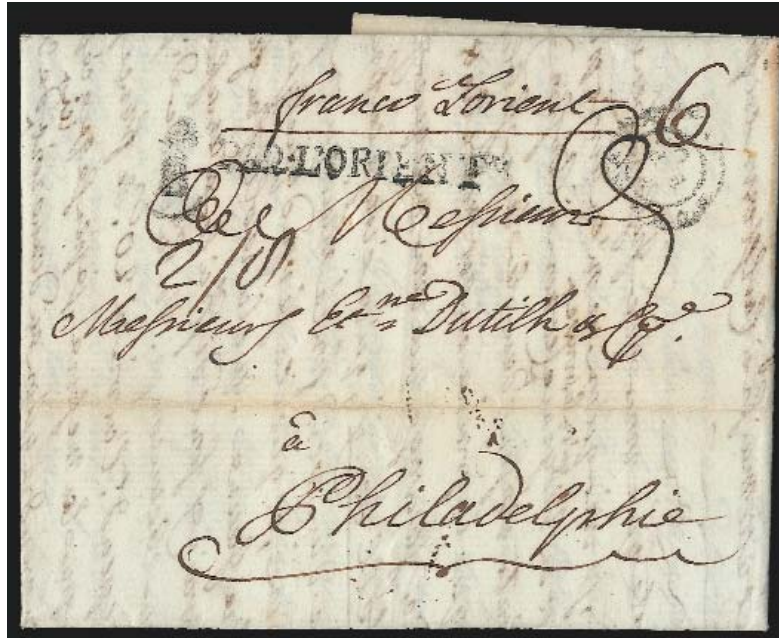 franco Lorient
6
PAQ·L'ORIENT
Messieurs
2/8
Messieurs Et.ne Dutilh & Co.
à
Philadelphie